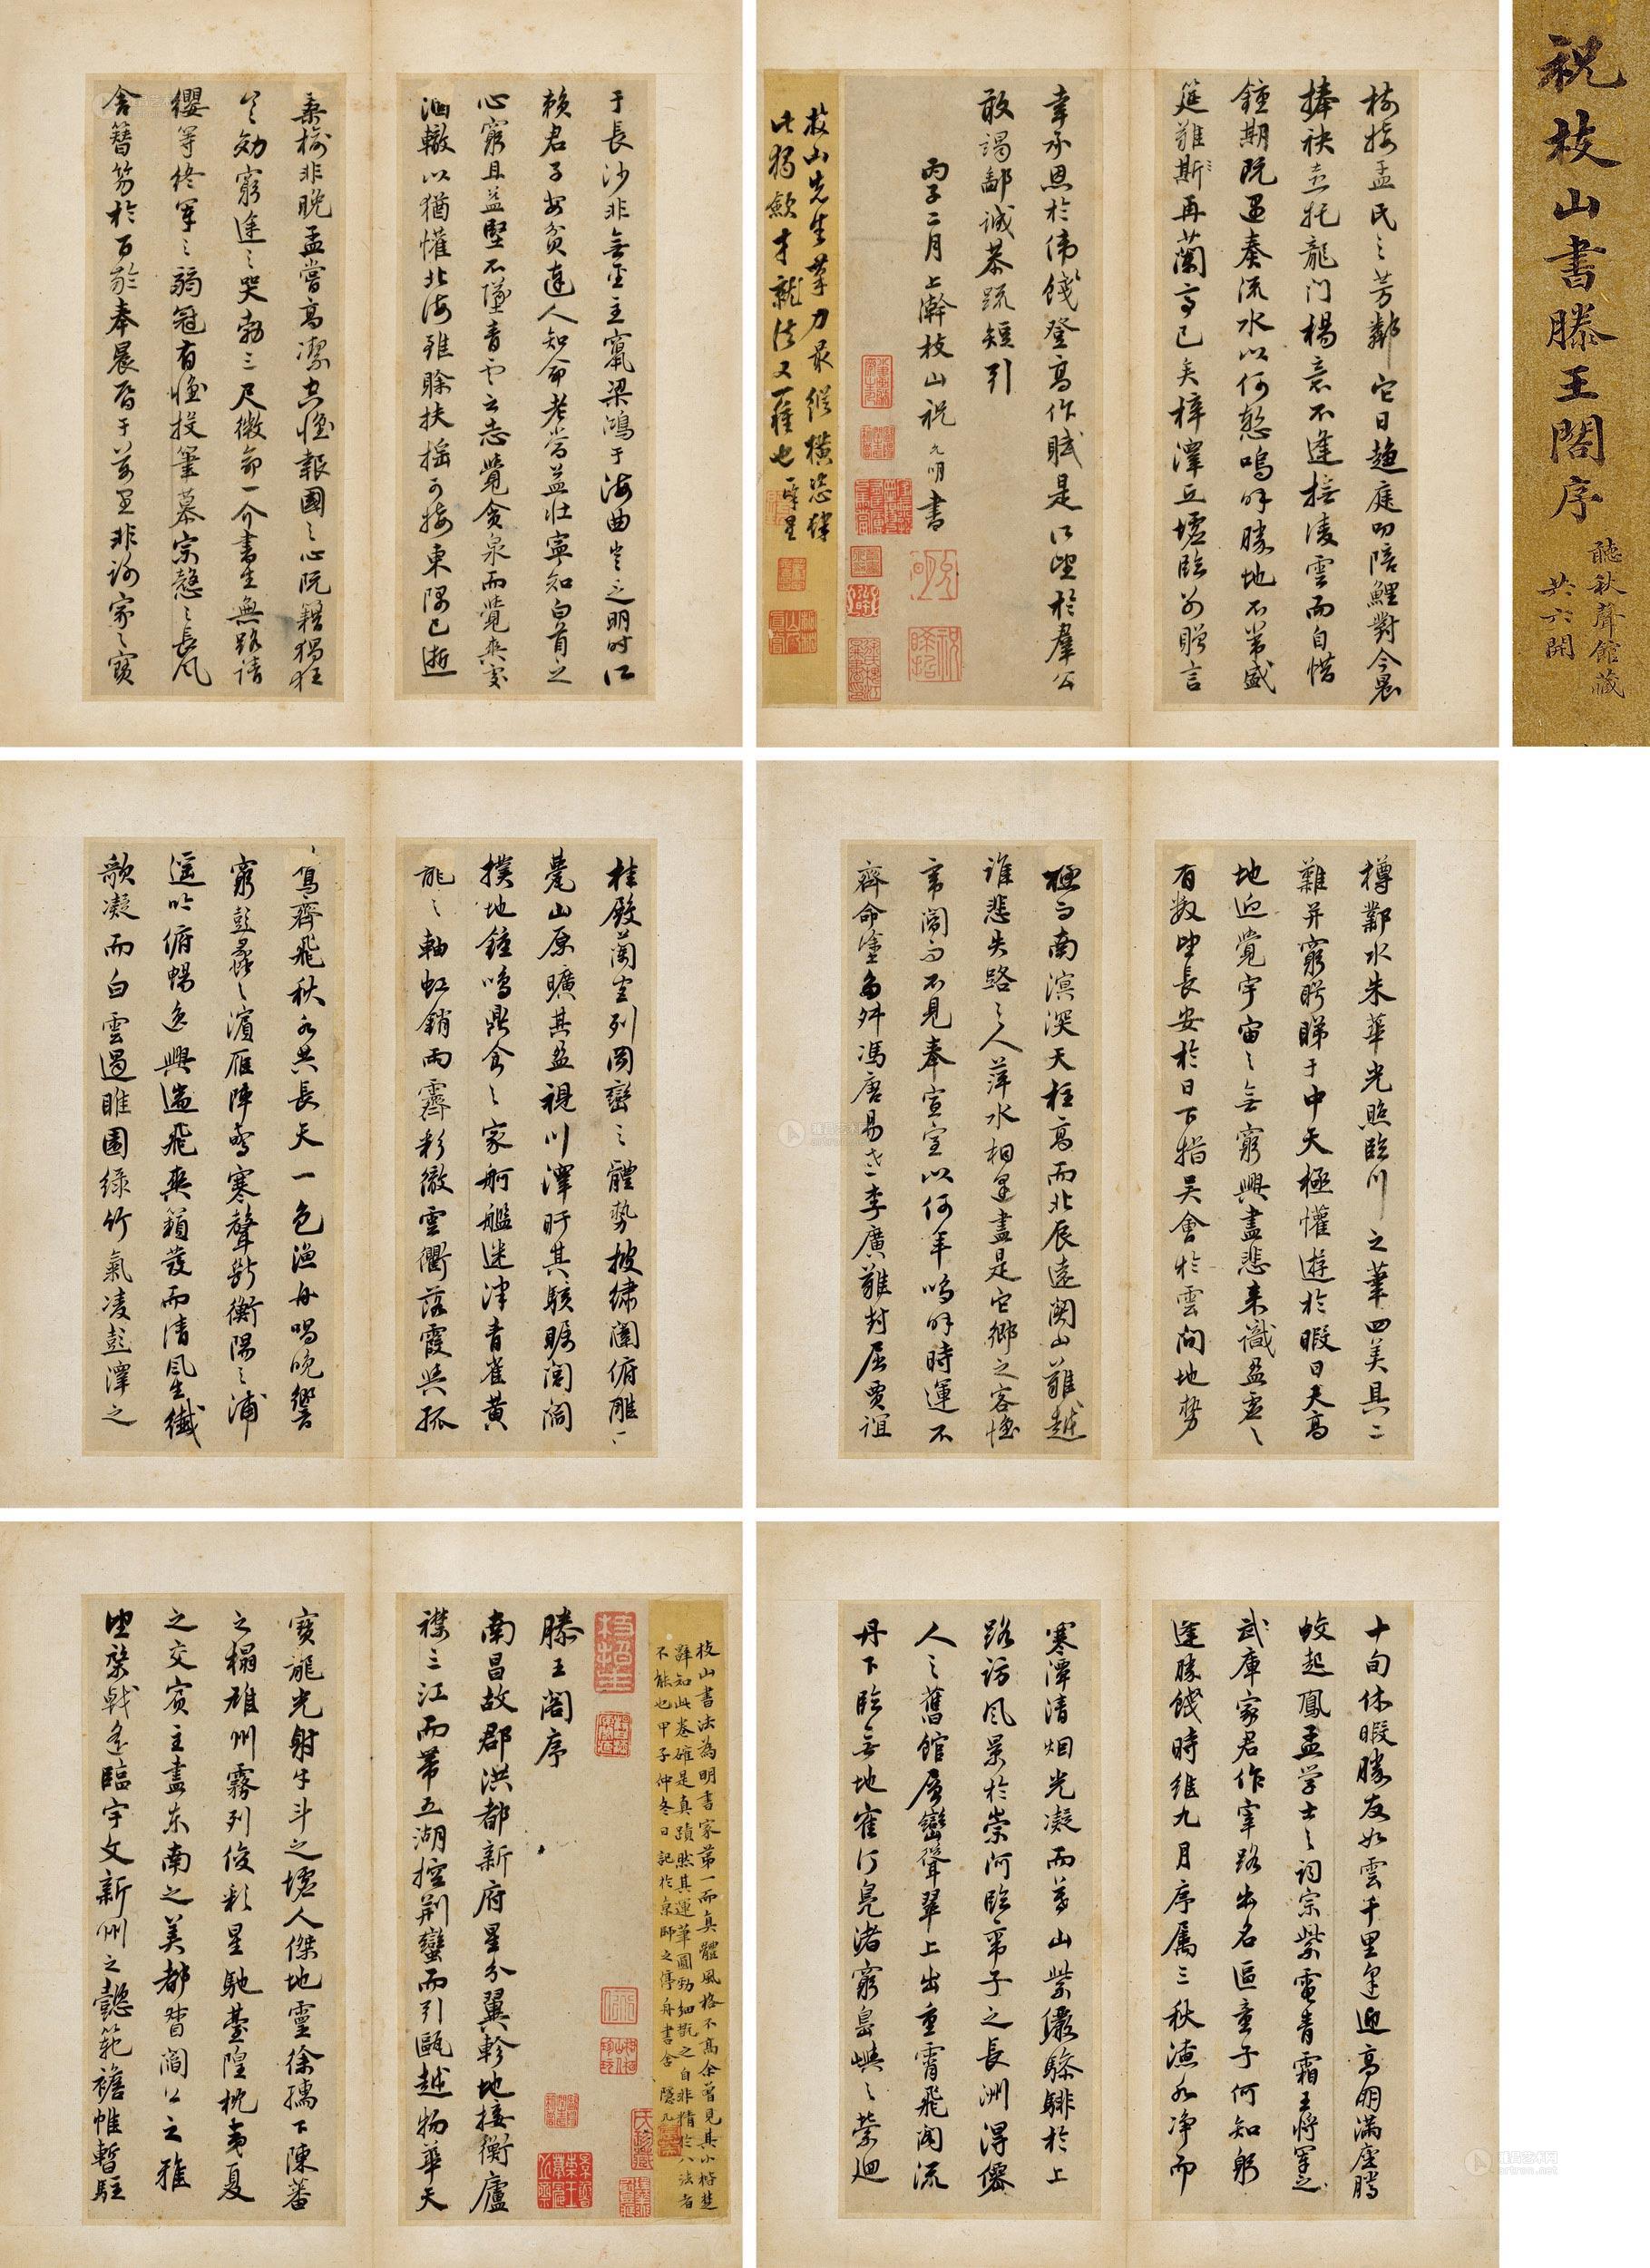 祝枝山書滕王閣序
聽秋聲館藏
共六開
枝山書法為明書家第一而真體風格不高余曾見其小楷楚
辭知此卷確是真蹟然其運筆圓勁細翫之自非精於八法者
不能也甲子仲冬日記於京師之停舟書舍
滕王閣序
南昌故郡洪都新府星分翼軫地接衡廬
襟三江而帶五湖控荆蠻而引甌越物華天
寶龍光射牛斗之墟人傑地靈徐孺下陳蕃
之榻雄州霧列俊彩星馳臺隍枕夷夏
之交賓主盡東南之美都督閻公之雅
望棨戟遙臨宇文新州之懿範襜帷暫駐
十旬休暇勝友如雲千里逢迎高朋滿座騰
蛟起鳳孟学士之詞宗紫電青霜王將軍之
武庫家君作宰路出名區童子何知躬
逢勝餞時維九月序属三秋潦水净而
寒潭清烟光凝而暮山紫儼驂騑於上
路訪風景於崇阿臨帝子之長洲得僊
人之舊館層巒聳翠上出重霄飛閣流
丹下臨無地雀汀鳧渚窮島嶼之縈廻
桂殿蘭宮列岡巒之體勢披繡闥俯雕
甍山原曠其盈視川澤盱其駭矚閭閻
撲地鐘鳴鼎食之家舸艦迷津青雀黄
龍之軸虹銷雨霽彩徹雲衢落霞與孤
鶩齊飛秋水共長天一色漁舟唱晚響
窮彭蠡之濱雁陣驚寒聲斷衡陽之浦
遥吟俯暢逸興遄飛爽籟發而清風生纖
歌凝而白雲遏睢園緑竹氣凌彭澤之
樽鄴水朱華光照臨川之筆四美具二
難并窮睇眄于中天極懽遊於暇日天高
地迥覺宇宙之無窮興盡悲來識盈虚之
有数望長安於日下指吴會於雲間地勢
極而南溟深天柱高而北辰遠關山難越
誰悲失路之人萍水相逢盡是它鄉之客懷
帝閽而不見奉宣室以何年嗚呼時運不
齊命塗多舛馮唐易老李廣難封屈賈誼
于長沙非無聖主竄梁鴻于海曲豈乏明时所
賴君子安貧達人知命老當益壯寧知白首之
心窮且益堅不墜青雲之志覺貪泉而覺爽處
涸轍以猶懽北海雖賒扶搖可接東隅已逝
桑榆非晚孟嘗高潔空懷報國之心阮籍猖狂
豈效窮途之哭勃三尺微命一介書生無路請
纓等終軍之弱冠有懷投筆慕宗慤之長風
舍簪笏於百齡奉晨昏于萬里非謝家之寶
樹接孟氏之芳鄰它日趨庭叨陪鯉對今晨
捧袂喜托龍门楊意不逢撫凌雲而自惜
鍾期既遇奏流水以何慙嗚呼勝地不常盛
筵難斯再蘭亭已矣梓澤丘墟臨别贈言
幸承恩於偉餞登高作賦是所望於羣公
敢竭鄙誠恭疏短引
丙子二月上澣枝山祝允明書
枝山先生筆力最縱横恣肆
此獨歛才就法又一種也